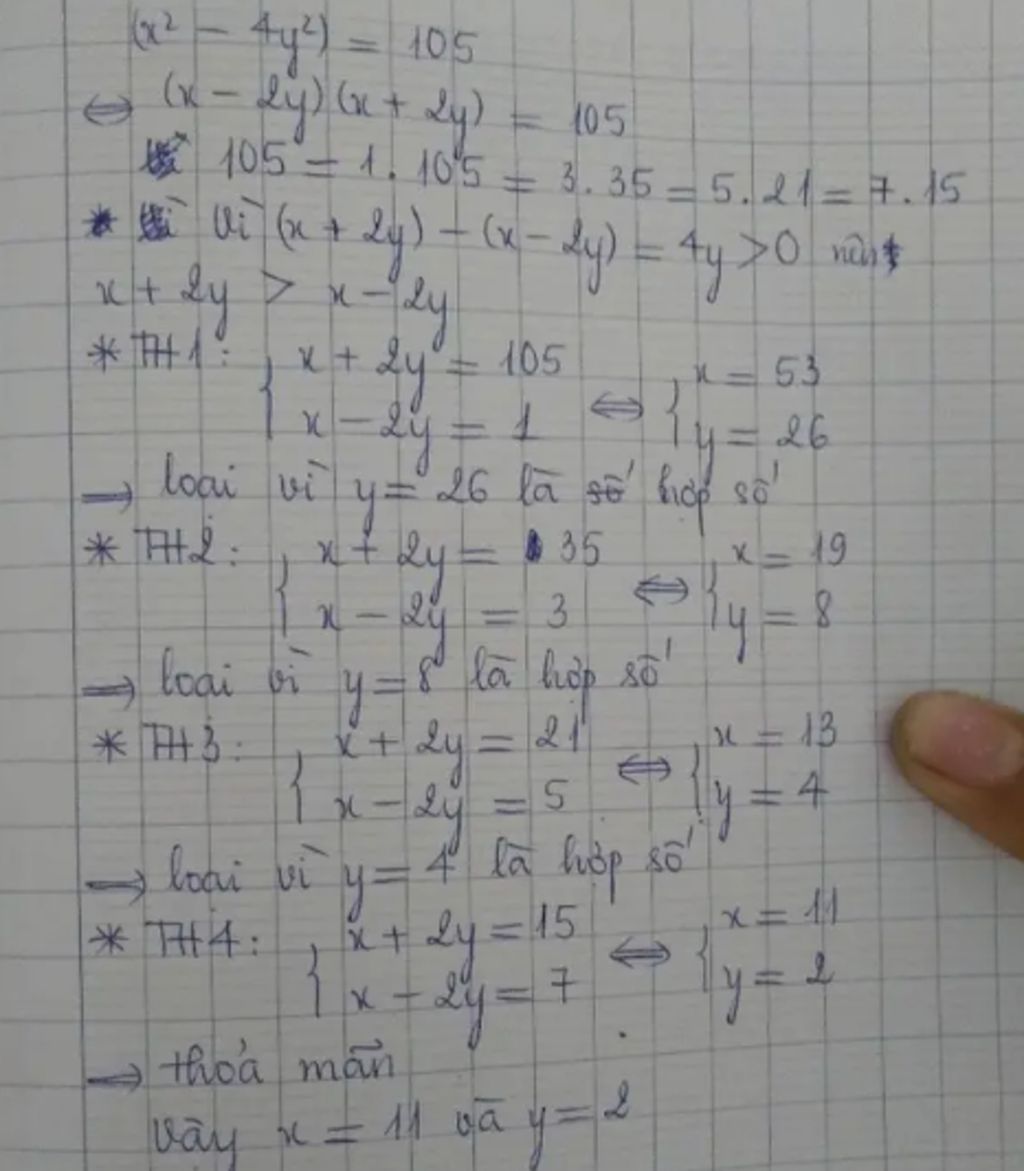 (x² - 4y²) = 105
⇔ (x - 2y)(x + 2y) = 105
105 = 1. 105 = 3. 35 = 5. 21 = 7. 15
* vì (x + 2y) - (x - 2y) = 4y > 0 nên
x + 2y > x - 2y
* TH1: { x + 2y = 105 ⇔ { x = 53
x - 2y = 1 y = 26
→ loại vì y = 26 là hợp số
* TH2: { x + 2y = 35 ⇔ { x = 19
x - 2y = 3 y = 8
→ loại vì y = 8 là hợp số
* TH3: { x + 2y = 21 ⇔ { x = 13
x - 2y = 5 y = 4
→ loại vì y = 4 là hợp số
* TH4: { x + 2y = 15 ⇔ { x = 11
x - 2y = 7 y = 2
→ thỏa mãn
Vậy x = 11 và y = 2